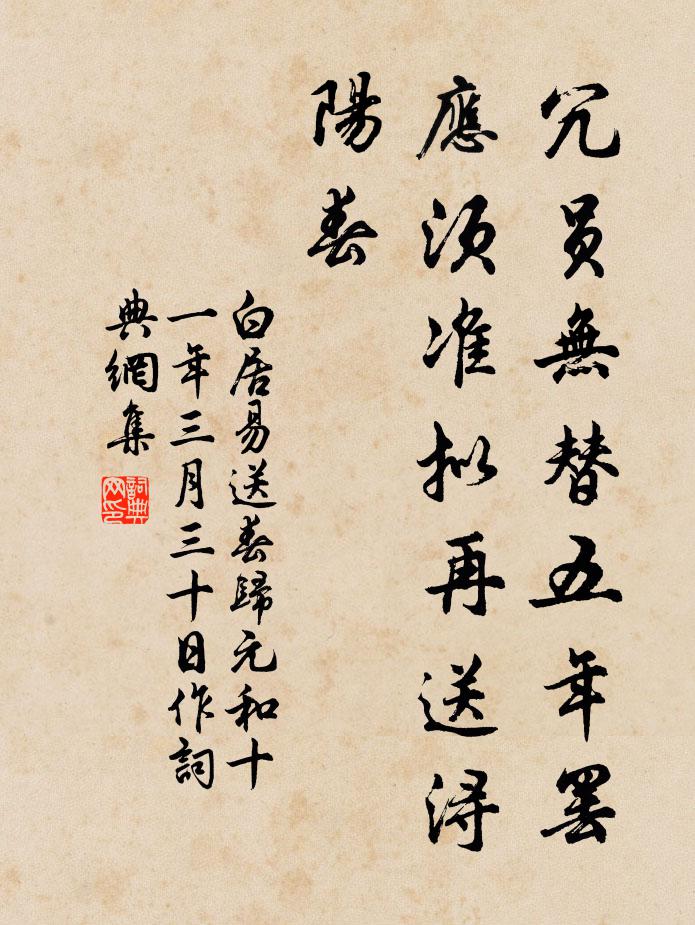 冗員無替五年罷
應須准拟再送潯
陽春
白居易送春歸元和十
一年三月三十日作詞
典網集
詞典網印